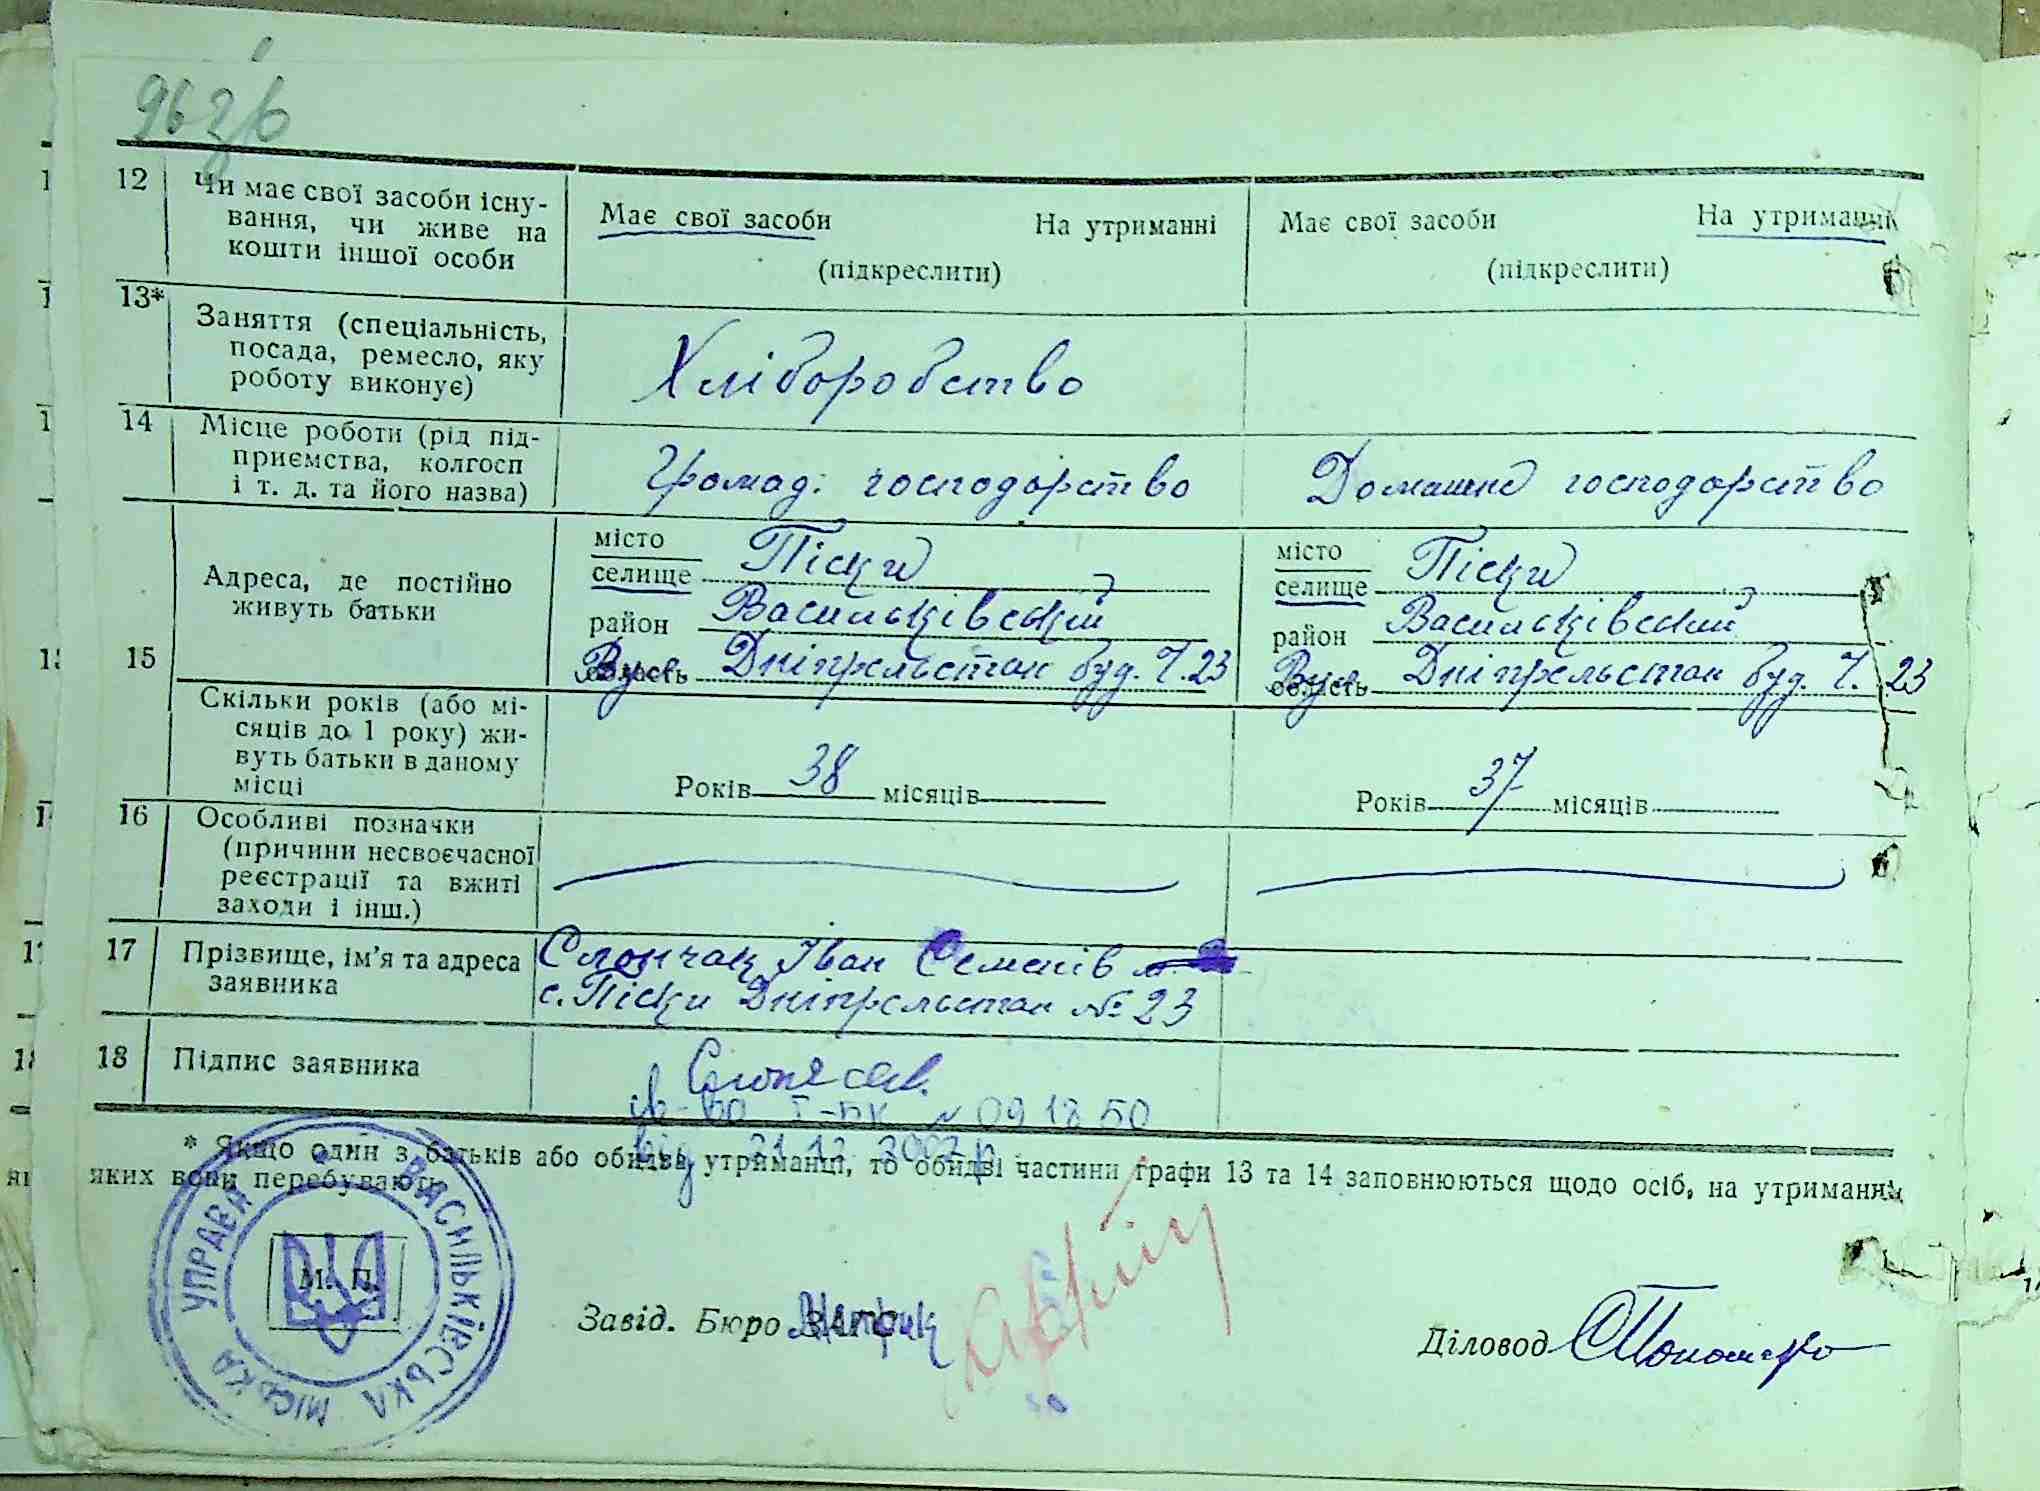 12 Чи має свої засоби існу-
вання, чи живе на
кошти іншої особи
Має свої засоби На утриманні
(підкреслити)
Має свої засоби На утриманні
(підкреслити)
13* Заняття (спеціальність,
посада, ремесло, яку
роботу виконує)
Хліборобство
14 Місце роботи (рід під-
приємства, колгосп
і т. д. та його назва)
Громад. господарство
Домашнє господарство
15 Адреса, де постійно
живуть батьки
місто
селище Піски
район Васильківський
Вул. область Дніпрельстан буд. Ч. 23
місто
селище Піски
район Васильківський
Вул. область Дніпрельстан буд. Ч. 23
Скільки років (або мі-
сяців до 1 року) жи-
вуть батьки в даному
місці
Років 38 місяців
Років 37 місяців
16 Особливі позначки
(причини несвоєчасної
реєстрації та вжиті
заходи і інш.)
17 Прізвище, ім'я та адреса
заявника
Слончак Іван Семенів
с. Піски Дніпрельстан № 23
18 Підпис заявника
св-во І-БК № 091250
від 21.12.2002 р
* Якщо один з батьків або обидва утриманці, то обидві частини графи 13 та 14 заповнюються щодо осіб, на утриманні
яких вони перебувають.
ВАСИЛЬКІВСЬКА МІСЬКА УПРАВА
М. П.
Завід. Бюро Метрик
Діловод